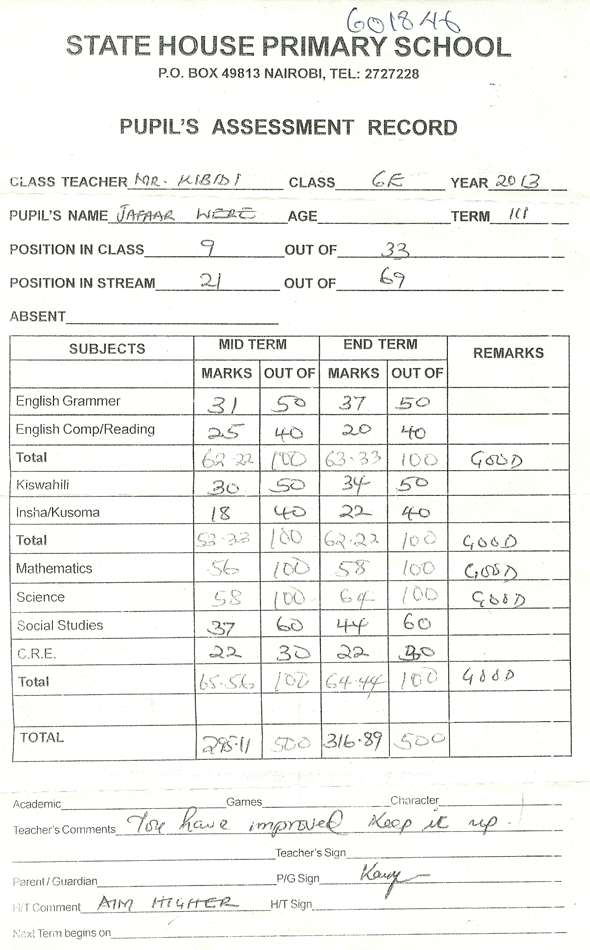 601846
STATE HOUSE PRIMARY SCHOOL
P.O. BOX 49813 NAIROBI, TEL: 2727228
PUPIL'S ASSESSMENT RECORD
CLASS TEACHER MR. KIBIDI CLASS 6E YEAR 2013
PUPIL'S NAME JAFAAR WERE AGE TERM III
POSITION IN CLASS 9 OUT OF 33
POSITION IN STREAM 21 OUT OF 69
ABSENT
SUBJECTS MID TERM END TERM REMARKS
MARKS OUT OF MARKS OUT OF
English Grammer 31 50 37 50
English Comp/Reading 25 40 20 40
Total 62.22 100 63.33 100 GOOD
Kiswahili 30 50 34 50
Insha/Kusoma 18 40 22 40
Total 53.33 100 62.22 100 GOOD
Mathematics 56 100 58 100 GOOD
Science 58 100 64 100 GOOD
Social Studies 37 60 44 60
C.R.E. 22 30 22 30
Total 65.56 100 64.44 100 GOOD
TOTAL 295.11 500 316.89 500
Academic Games Character
Teacher's Comments You have improved Keep it up.
Teacher's Sign
Parent / Guardian P/G Sign
H/T Comment AIM HIGHER H/T Sign
Next Term begins on